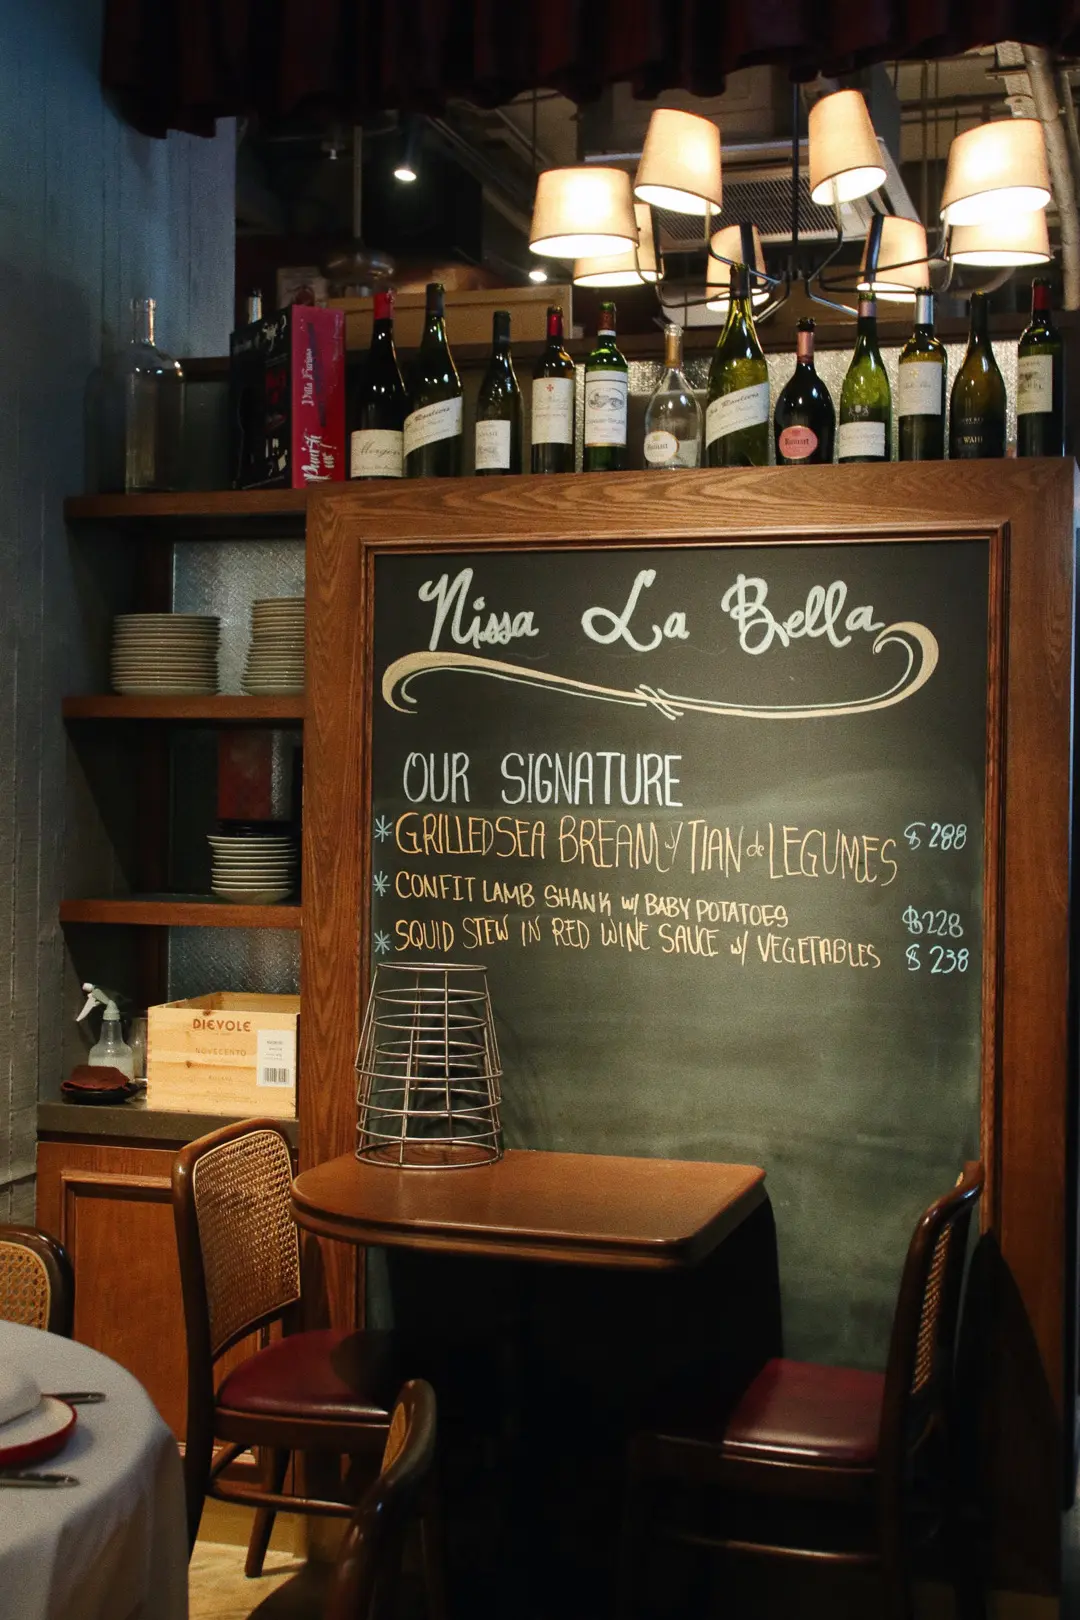 Villa Furiosa
Morgon
Ruinart
Ruinart
Nissa La Bella
OUR SIGNATURE
* GRILLED SEA BREAM w/ TIAN de LEGUMES $ 288
* CONFIT LAMB SHANK w/ BABY POTATOES $228
* SQUID STEW IN RED WINE SAUCE w/ VEGETABLES $ 238
DIEVOLE
NOVECENTO